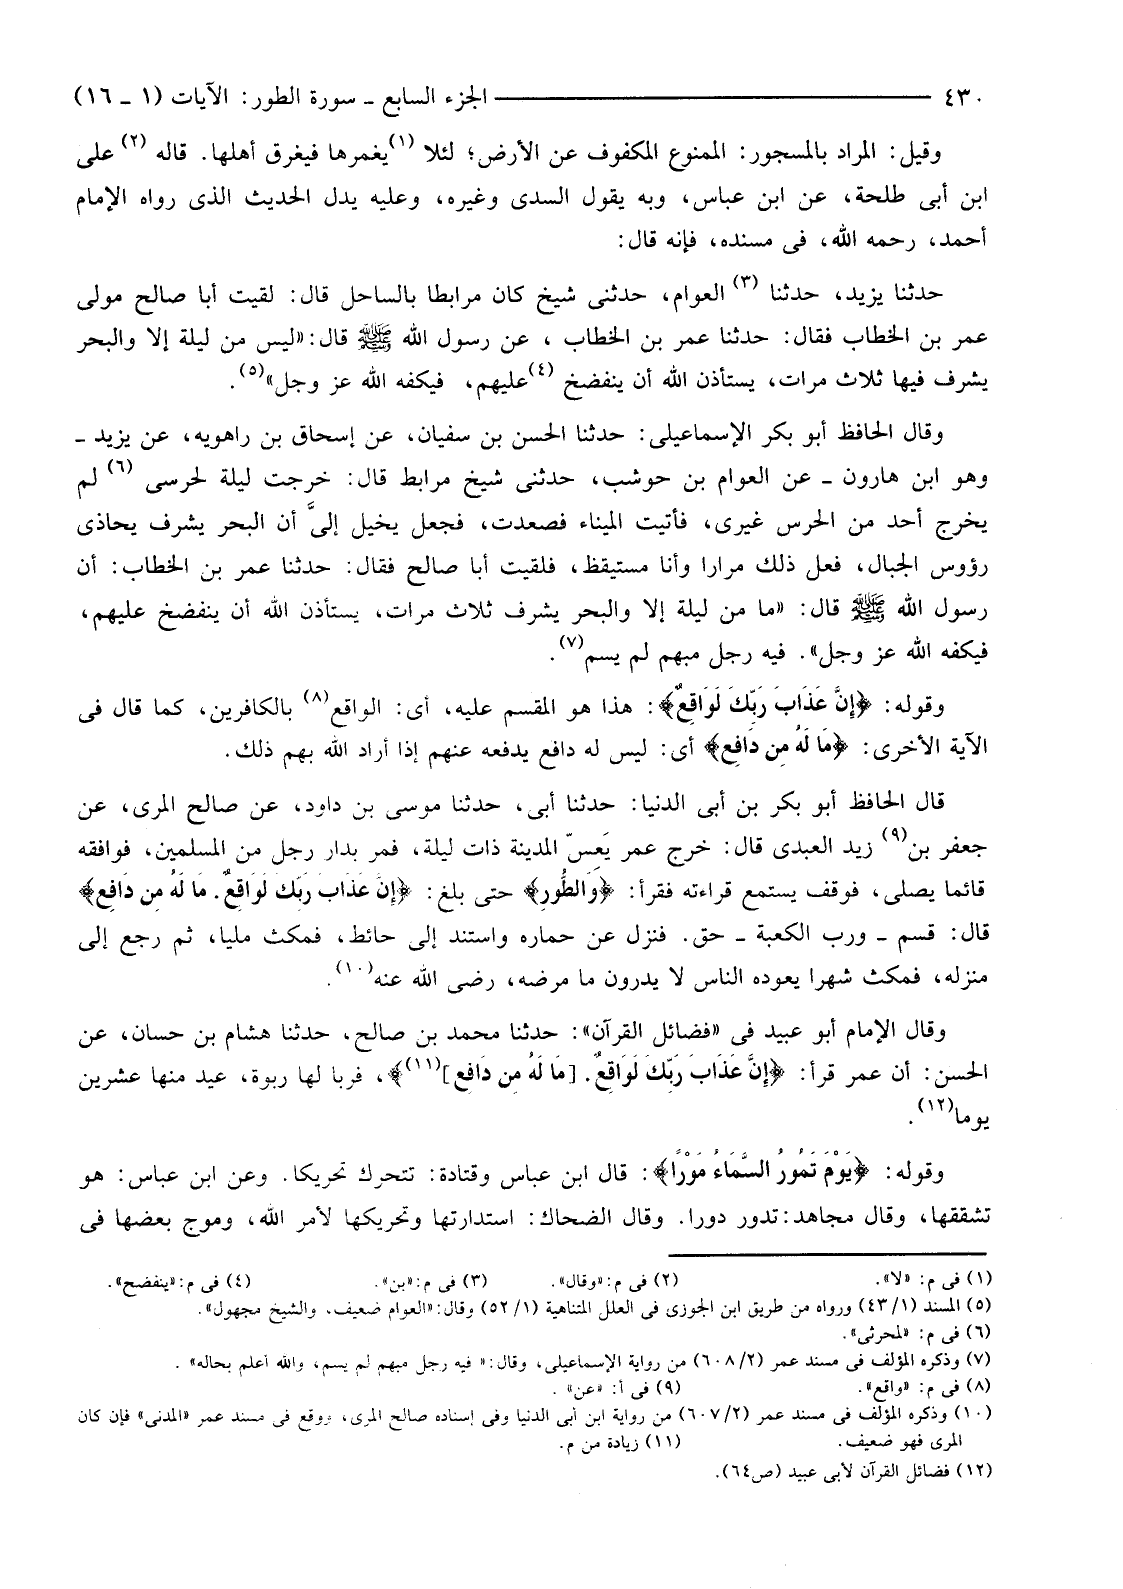 ٤٣٠ ــــــــــــــــــــ الجزء السابع ـ سورة الطور: الآيات (١ ـ ١٦)
وقيل: المراد بالمسجور: الممنوع المكفوف عن الأرض؛ لئلا (١)يغمرها فيغرق أهلها. قاله (٢) على
ابن أبى طلحة، عن ابن عباس، وبه يقول السدى وغيره، وعليه يدل الحديث الذى رواه الإمام
أحمد، رحمه الله، فى مسنده، فإنه قال:
حدثنا يزيد، حدثنا (٣) العوام، حدثنى شيخ كان مرابطا بالساحل قال: لقيت أبا صالح مولى
عمر بن الخطاب فقال: حدثنا عمر بن الخطاب ، عن رسول الله ﷺ قال: «ليس من ليلة إلا والبحر
يشرف فيها ثلاث مرات، يستأذن الله أن ينفضخ (٤)عليهم، فيكفه الله عز وجل»(٥).
وقال الحافظ أبو بكر الإسماعيلى: حدثنا الحسن بن سفيان، عن إسحاق بن راهويه، عن يزيد ـ
وهو ابن هارون ـ عن العوام بن حوشب، حدثنى شيخ مرابط قال: خرجت ليلة لحرسى (٦) لم
يخرج أحد من الحرس غيرى، فأتيت الميناء فصعدت، فجعل يخيل إلىَّ أن البحر يشرف يحاذى
رؤوس الجبال، فعل ذلك مرارا وأنا مستيقظ، فلقيت أبا صالح فقال: حدثنا عمر بن الخطاب: أن
رسول الله ﷺ قال: «ما من ليلة إلا والبحر يشرف ثلاث مرات، يستأذن الله أن ينفضخ عليهم،
فيكفه الله عز وجل». فيه رجل مبهم لم يسم(٧).
وقوله: ﴿إِنَّ عَذَابَ رَبِّكَ لَوَاقِعٌ﴾: هذا هو المقسم عليه، أى: الواقع(٨) بالكافرين، كما قال فى
الآية الأخرى: ﴿مَا لَهُ مِن دَافِعٍ﴾ أى: ليس له دافع يدفعه عنهم إذا أراد الله بهم ذلك.
قال الحافظ أبو بكر بن أبى الدنيا: حدثنا أبى، حدثنا موسى بن داود، عن صالح المرى، عن
جعفر بن(٩) زيد العبدى قال: خرج عمر يَعِسّ المدينة ذات ليلة، فمر بدار رجل من المسلمين، فوافقه
قائما يصلى، فوقف يستمع قراءته فقرأ: ﴿وَالطُّورِ﴾ حتى بلغ: ﴿إِنَّ عَذَابَ رَبِّكَ لَوَاقِعٌ. مَا لَهُ مِن دَافِعٍ﴾
قال: قسم ـ ورب الكعبة ـ حق. فنزل عن حماره واستند إلى حائط، فمكث مليا، ثم رجع إلى
منزله، فمكث شهرا يعوده الناس لا يدرون ما مرضه، رضى الله عنه(١٠).
وقال الإمام أبو عبيد فى «فضائل القرآن»: حدثنا محمد بن صالح، حدثنا هشام بن حسان، عن
الحسن: أن عمر قرأ: ﴿إِنَّ عَذَابَ رَبِّكَ لَوَاقِعٌ. [مَا لَهُ مِن دَافِعٍ](١١)﴾، فربا لها ربوة، عيد منها عشرين
يوما(١٢).
وقوله: ﴿يَوْمَ تَمُورُ السَّمَاءُ مَوْرًا﴾: قال ابن عباس وقتادة: تتحرك تحريكا. وعن ابن عباس: هو
تشققها، وقال مجاهد:تدور دورا. وقال الضحاك: استدارتها وتحريكها لأمر الله، وموج بعضها فى
(١) فى م: «لا». (٢) فى م:«وقال». (٣) فى م:«بن». (٤) فى م:«ينفضح».
(٥) المسند (٤٣/١) ورواه من طريق ابن الجوزى فى العلل المتناهية (٥٢/١) وقال:«العوام ضعيف، والشيخ مجهول».
(٦) فى م: «لمحرثى».
(٧) وذكره المؤلف فى مسند عمر (٦٠٨/٢) من رواية الإسماعيلى، وقال:« فيه رجل مبهم لم يسم، والله أعلم بحاله» .
(٨) فى م: «واقع». (٩) فى أ: «عن» .
(١٠) وذكره المؤلف فى مسند عمر (٦٠٧/٢) من رواية ابن أبى الدنيا وفى إسناده صالح المرى، ووقع فى مسند عمر «المدنى» فإن كان
المرى فهو ضعيف. (١١) زيادة من م.
(١٢) فضائل القرآن لأبى عبيد (ص٦٤).